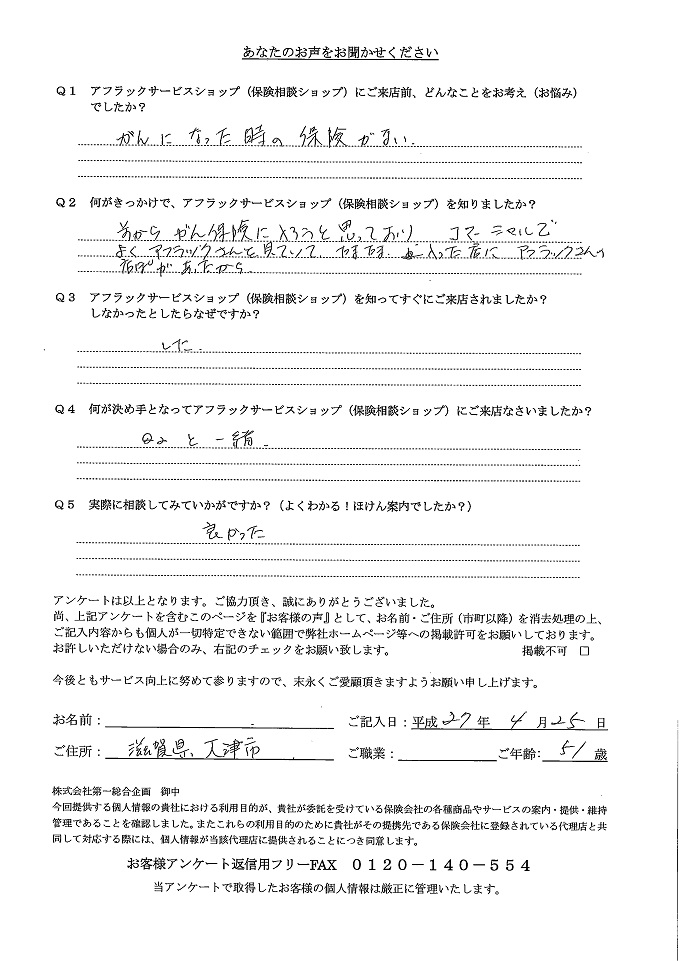 あなたのお声をお聞かせください
Q1 アフラックサービスショップ（保険相談ショップ）にご来店前、どんなことをお考え（お悩み）
でしたか？
がんになった時の保険がない.
Q2 何がきっかけで、アフラックサービスショップ（保険相談ショップ）を知りましたか？
前から がん保険に入ろうと思っており コマーシャルで
よくアフラックさんを見ていて、たまたま 入った店に アフラックさんの
があったから.
Q3 アフラックサービスショップ（保険相談ショップ）を知ってすぐにご来店されましたか？
しなかったとしたらなぜですか？
した.
Q4 何が決め手となってアフラックサービスショップ（保険相談ショップ）にご来店なさいましたか？
Q2 と 一緒.
Q5 実際に相談してみていかがですか？（よくわかる！ほけん案内でしたか？）
良かった
アンケートは以上となります。ご協力頂き、誠にありがとうございました。
尚、上記アンケートを含むこのページを『お客様の声』として、お名前・ご住所（市町以降）を消去処理の上、
ご記入内容からも個人が一切特定できない範囲で弊社ホームページ等への掲載許可をお願いしております。
お許しいただけない場合のみ、右記のチェックをお願い致します。 掲載不可 □
今後ともサービス向上に努めて参りますので、末永くご愛顧頂きますようお願い申し上げます。
お名前： ご記入日：平成 27 年 4 月 25 日
ご住所： 滋賀県、大津市 ご職業： ご年齢： 51 歳
株式会社第一総合企画 御中
今回提供する個人情報の貴社における利用目的が、貴社が委託を受けている保険会社の各種商品やサービスの案内・提供・維持
管理であることを確認しました。またこれらの利用目的のために貴社がその提携先である保険会社に登録されている代理店と共
同して対応する際には、個人情報が当該代理店に提供されることにつき同意します。
お客様アンケート返信用フリーFAX 0120－140－554
当アンケートで取得したお客様の個人情報は厳正に管理いたします。